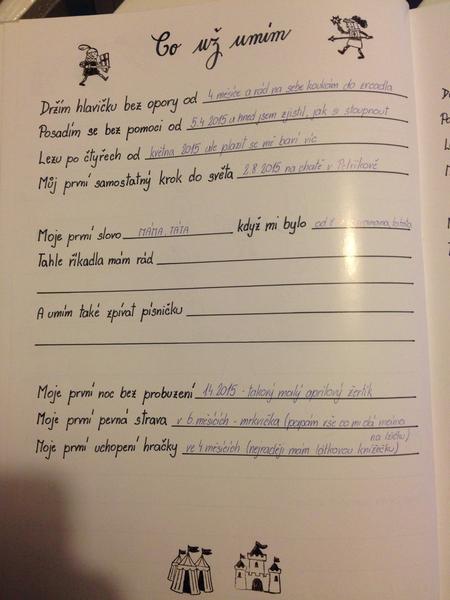 Co už umím
Držím hlavičku bez opory od 4 měsíce a rád na sebe koukám do zrcadla
Posadím se bez pomoci od 5.4.2015 a hned jsem zjistil, jak si stoupnout
Lezu po čtyřech od května 2015 ale plazit se mě baví víc
Můj první samostatný krok do světa 2.8.2015 na chatě v Petříkově
Moje první slovo MÁMA, TÁTA když mi bylo od
Tahle říkadla mám rád
A umím také zpívat písničku
Moje první noc bez probuzení 1.4.2015 - takový malý aprílový žertík
Moje první pevná strava v 6. měsících - mrkvička (papám vše co mi dá máma
na lžičku)
Moje první uchopení hračky ve 4 měsících (nejraději mám látkovou knížečku)